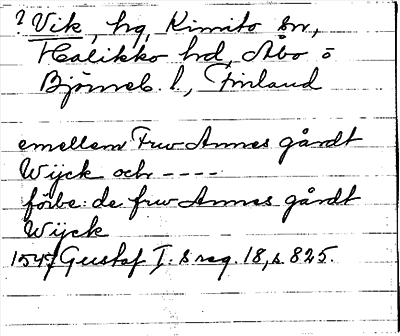 ? Vik, hg, Kimito sn,
Halikko hd, Åbo o
Björneb. l., Finland
emellem Frw Annes gårdt
Wijck och ----
förbe: de frw Annes gårdt
Wijck
1547/ Gustaf I:s reg. 18, s. 825.